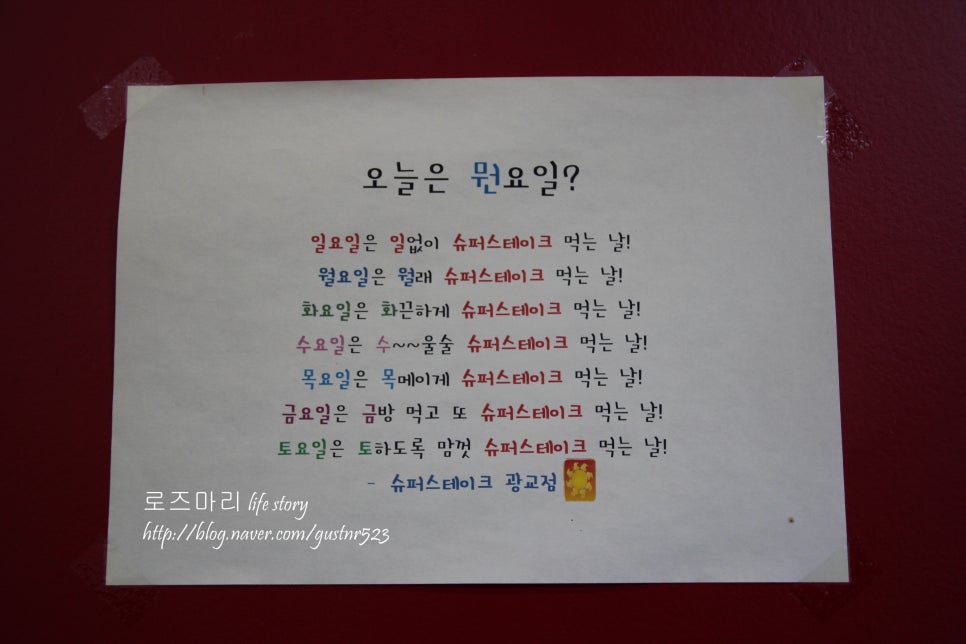 오늘은 뭔요일?
일요일은 일없이 슈퍼스테이크 먹는 날!
월요일은 월래 슈퍼스테이크 먹는 날!
화요일은 화끈하게 슈퍼스테이크 먹는 날!
수요일은 수~~울술 슈퍼스테이크 먹는 날!
목요일은 목메이게 슈퍼스테이크 먹는 날!
금요일은 금방 먹고 또 슈퍼스테이크 먹는 날!
토요일은 토하도록 맘껏 슈퍼스테이크 먹는 날!
- 슈퍼스테이크 광교점
로즈마리 life story
http://blog.naver.com/gustnr523